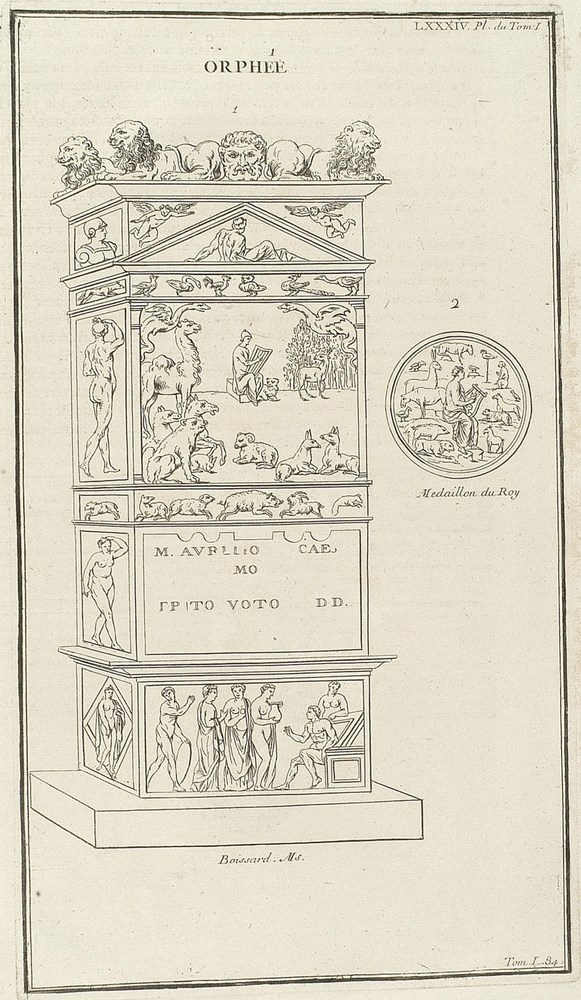 LXXXIV. Pl. du Tom I
1
ORPHEE
1
2
Medaillon du Roy
M. AVRELIO CAE
MO
TPITO VOTO DD.
Boissard. Ms.
Tom. I. 84